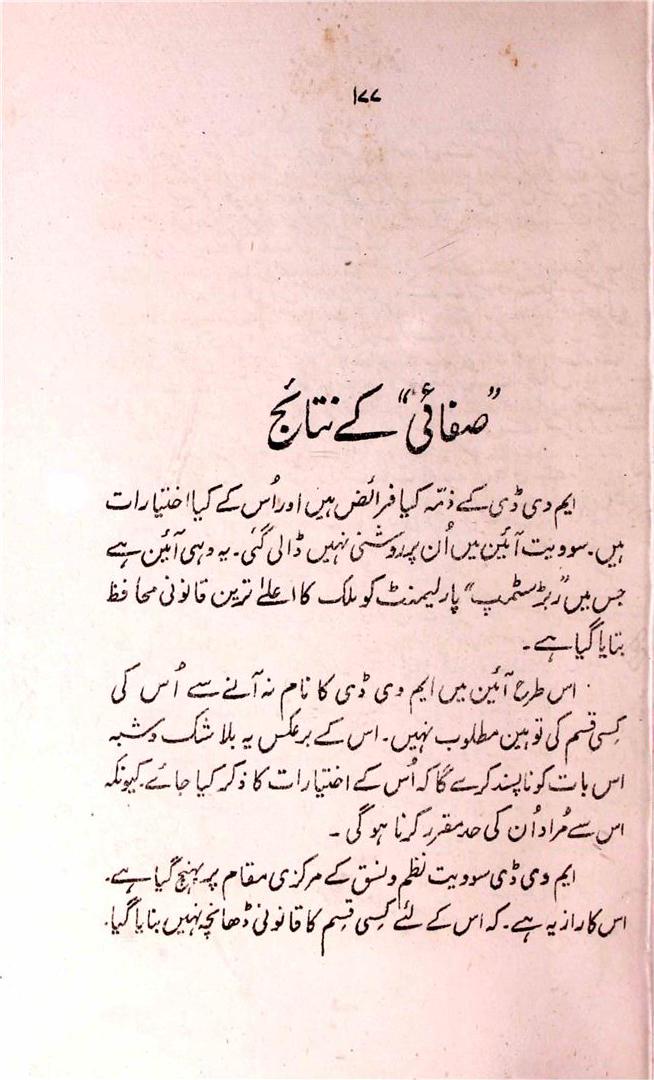 ۱۷۷
”صفائی“ کے نتائج
ایم وی ڈی کے ذمّہ کیا فرائض ہیں اور اُس کے کیا اختیارات
ہیں۔ سوویت آئین میں اُن پر روشنی نہیں ڈالی گئی۔ یہ وہی آئین ہے
جس میں ”ربڑ سٹمپ“ پارلیمنٹ کو ملک کا اعلےٰ ترین قانونی محافظ
بتایا گیا ہے۔
اس طرح آئین میں ایم وی ڈی کا نام نہ آنے سے اُس کی
کِسی قسم کی توہین مطلوب نہیں۔ اس کے برعکس یہ بلا شک و شبہ
اس بات کو ناپسند کرے گا کہ اُس کے اختیارات کا ذکر کیا جائے۔ کیونکہ
اس سے مُراد اُن کی حد مقرر کرنا ہو گی۔
ایم وی ڈی سوویت نظم و نسق کے مرکزی مقام پر پہنچ گیا ہے۔
اس کا راز یہ ہے۔ کہ اس کے لئے کِسی قِسم کا قانونی ڈھانچہ نہیں بنایا گیا۔